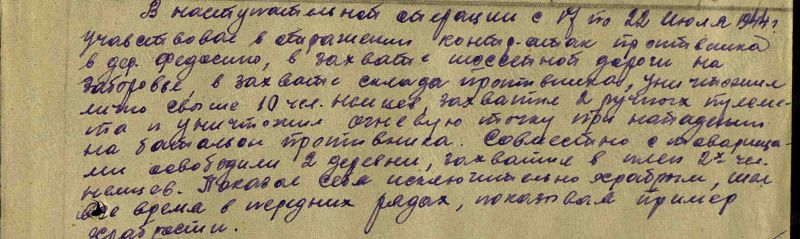 В наступательной операции с 17 по 22 июля 1944 г.
участвовал в отражении контр-атак противника
в дер. Федосино, в захвате шоссейной дороги на
Заборовье, в захвате склада противника, уничтожил
лично свыше 10 чел. немцев, захватил 2 ручных пулеме-
та и уничтожил огневую точку при нападении
на батальон противника. Совместно с товарища-
ми освободили 2 деревни, захватив в плен 2х чел.
немцев. Показал себя исключительно храбрым, шел
все время в передних рядах, показывая пример
храбрости.